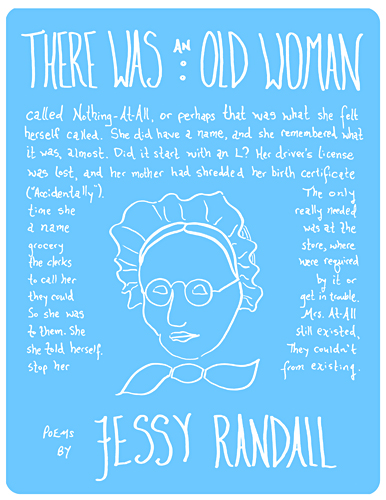 THERE WAS AN OLD WOMAN
called Nothing-At-All, or perhaps that was what she felt
herself called. She did have a name, and she remembered what
it was, almost. Did it start with an L? Her driver's license
was lost, and her mother had shredded her birth certificate
("Accidentally"). The only
time she really needed
a name was at the
grocery store, where
the clerks were required
to call her by it or
they could get in trouble.
So she was Mrs. At-All
to them. She still existed,
she told herself. They couldn't
stop her from existing.
POEMS
BY
JESSY RANDALL